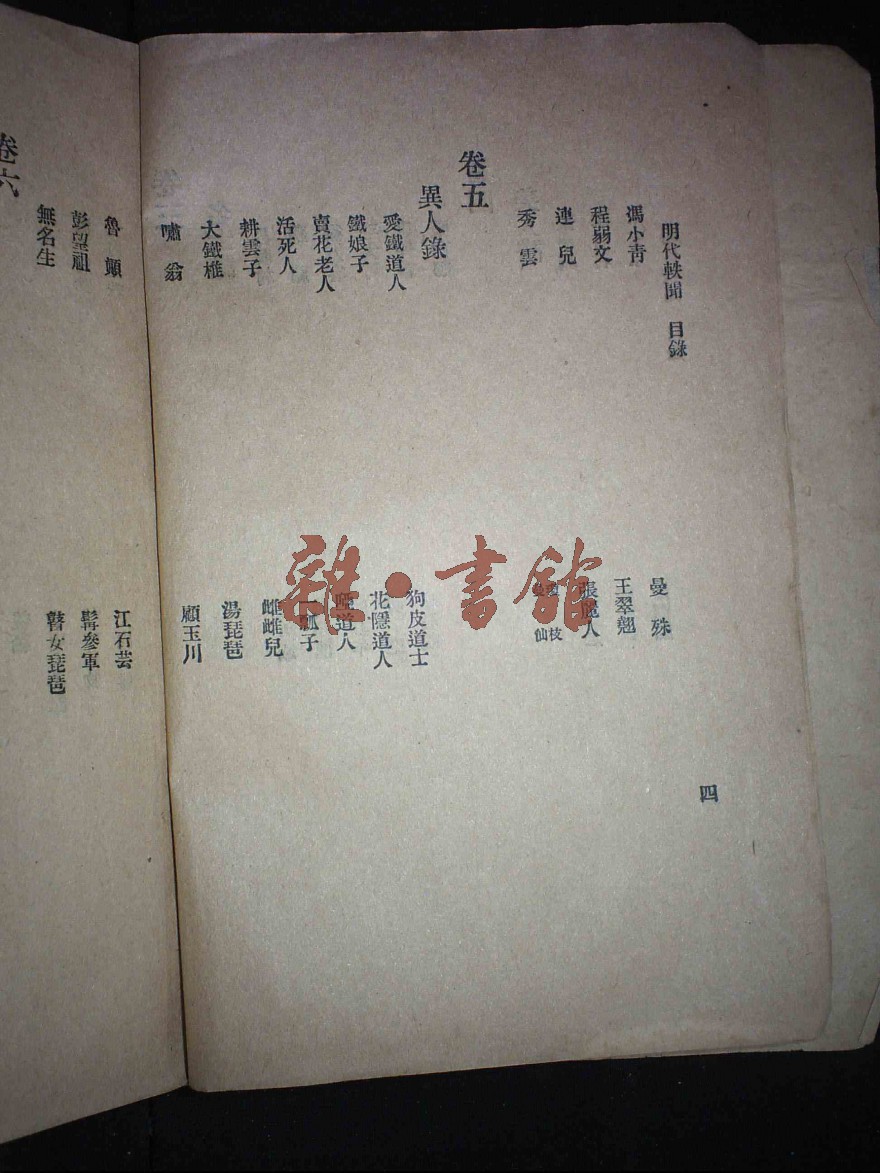 明代軼聞 目錄
四
馮小靑
曼殊
程弱文
王翠翹
連兒
張麗人
秀雲
仙枝
卷五
異人錄
愛鐵道人
狗皮道士
鐵娘子
花隱道人
賣花老人
啞道人
活死人
一瓢子
耕雲子
雌雌兒
大鐵椎
湯琵琶
嘯翁
顧玉川
魯顚
江石芸
彭望祖
髯參軍
無名生
瞽女琵琶
卷六
雜·書館